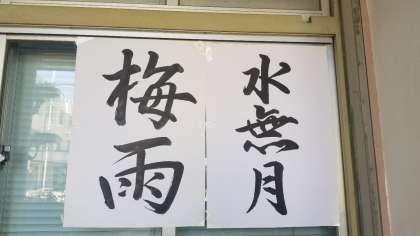 水無月
梅雨